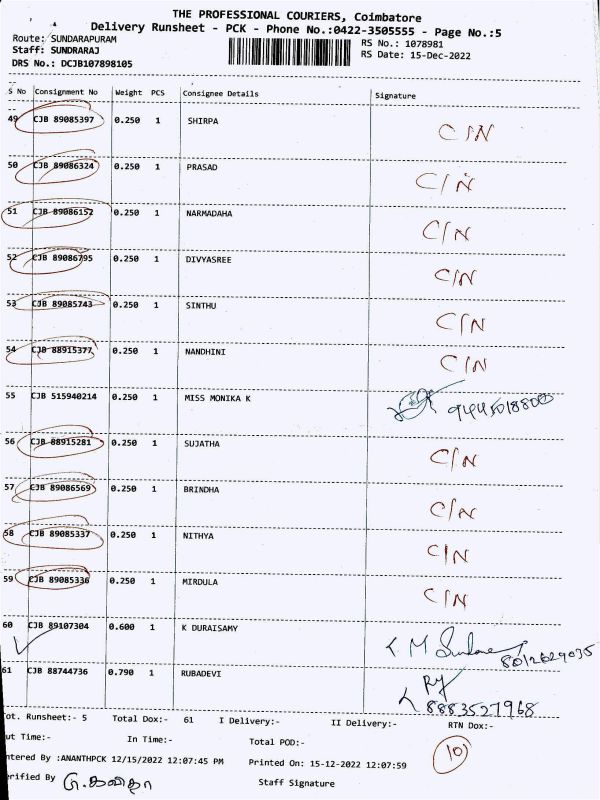 THE PROFESSIONAL COURIERS, Coimbatore
Delivery Runsheet - PCK - Phone No.:0422-3505555 - Page No.:5
Route: SUNDARAPURAM RS No.: 1078981
Staff: SUNDRARAJ RS Date: 15-Dec-2022
DRS No.: DCJB107898105
S No Consignment No Weight PCS Consignee Details Signature
49 CJB 89085397 0.250 1 SHIRPA C/N
50 CJB 89086324 0.250 1 PRASAD C/N
51 CJB 89086152 0.250 1 NARMADAHA C/N
52 CJB 89086795 0.250 1 DIVYASREE C/N
53 CJB 89085743 0.250 1 SINTHU C/N
54 CJB 88915377 0.250 1 NANDHINI C/N
55 CJB 515940214 0.250 1 MISS MONIKA K
56 CJB 88915281 0.250 1 SUJATHA C/N
57 CJB 89086569 0.250 1 BRINDHA C/N
58 CJB 89085337 0.250 1 NITHYA C/N
59 CJB 89085336 0.250 1 MIRDULA C/N
60 CJB 89107304 0.600 1 K DURAISAMY
61 CJB 88744736 0.790 1 RUBADEVI 8883527968
ot. Runsheet:- 5 Total Dox:- 61 I Delivery:- II Delivery:- RTN Dox:-
ut Time:- In Time:- Total POD:- 10
ntered By :ANANTHPCK 12/15/2022 12:07:45 PM Printed On: 15-12-2022 12:07:59
erified By Staff Signature